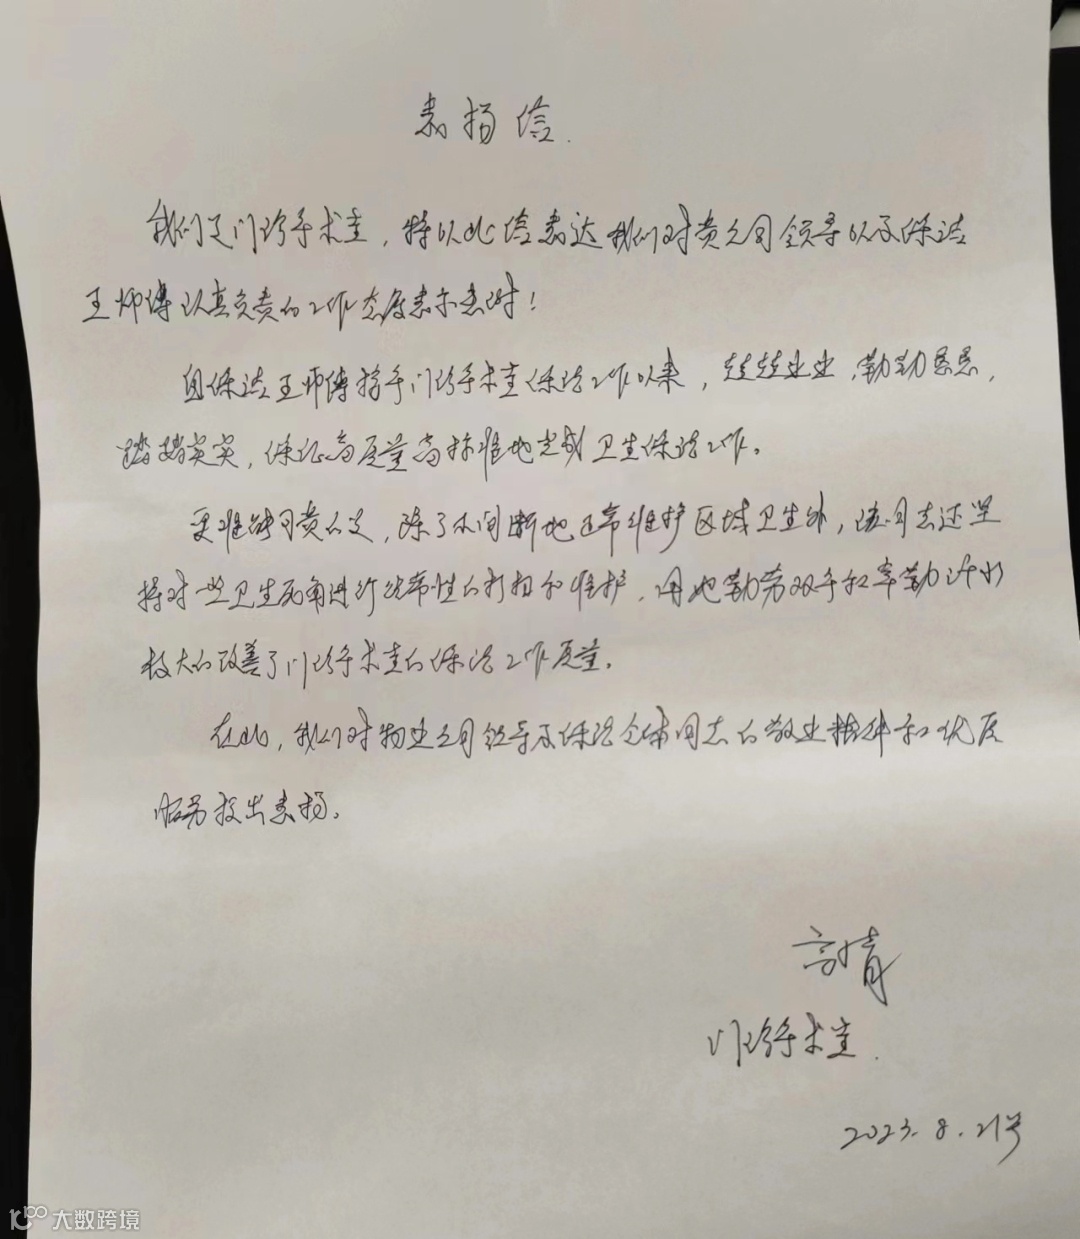 表扬信.
我们是门诊手术室，特以此信表达我们对贵公司领导以及保洁
王师傅认真负责的工作态度表示感谢！
自保洁王师傅接手门诊手术室保洁工作以来，兢兢业业，勤勤恳恳，
踏踏实实，保证高质量高标准地完成卫生保洁工作。
更难能可贵的是，除了不间断地正常维护区域卫生外，该同志还坚
持对一些卫生死角进行经常性的打扫和维护，用她勤劳双手和辛勤汗水
极大的改善了门诊手术室的保洁工作质量。
在此，我们对物业公司领导及保洁全体同志的敬业精神和优质
服务提出表扬。
门诊手术室.
2023.8.21号
大数跨境